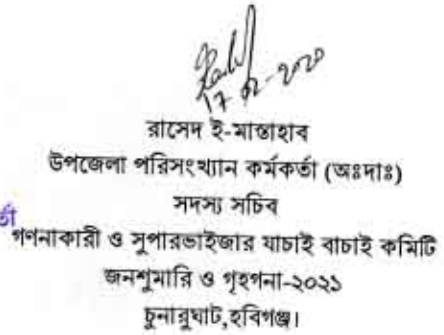 17-02-2020
রাসেদ ই-মাস্তাহাব
উপজেলা পরিসংখ্যান কর্মকর্তা (অঃদাঃ)
সদস্য সচিব
র্তা
গণনাকারী ও সুপারভাইজার যাচাই বাচাই কমিটি
জনশুমারি ও গৃহগনা-২০২১
চুনারুঘাট,হবিগঞ্জ।